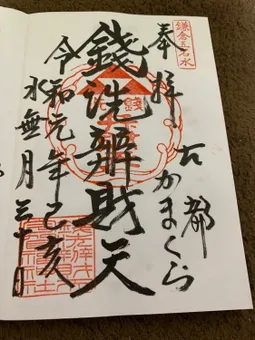 鎌倉五名水
奉拝
古都
かまくら
銭洗辨財天
令和元年己亥
水無月三十日